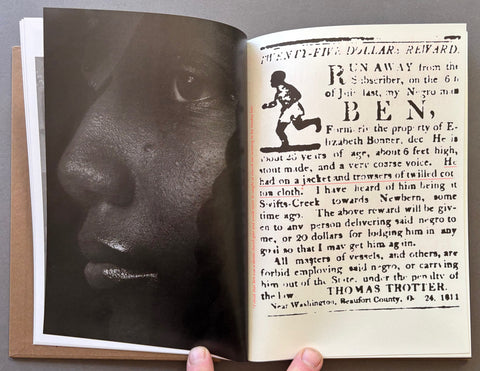 TWENTY-FIVE DOLLARS REWARD.
RUN AWAY from the
Subscriber, on the 6
of last, my Negro man
BEN,
Formerly the property of E-
lizabeth Bonner, dec He is
about 25 years of age, about 6 feet high,
stout made, and a very coarse voice. He
had on a jacket and trowsers of twilled cot
ton cloth. I have heard of him being it
Swifts-Creek towards Newbern, some
time ago. The above reward will be giv-
en to any person delivering said negro to
me, or 20 dollars for lodging him in any
goal so that I may get him again.
All masters of vessels, and others, are
forbid employing said negro, or carrying
him out of the State, under the penalty of
the law THOMAS TROTTER.
Near Washington, Beaufort County, 24, 1811